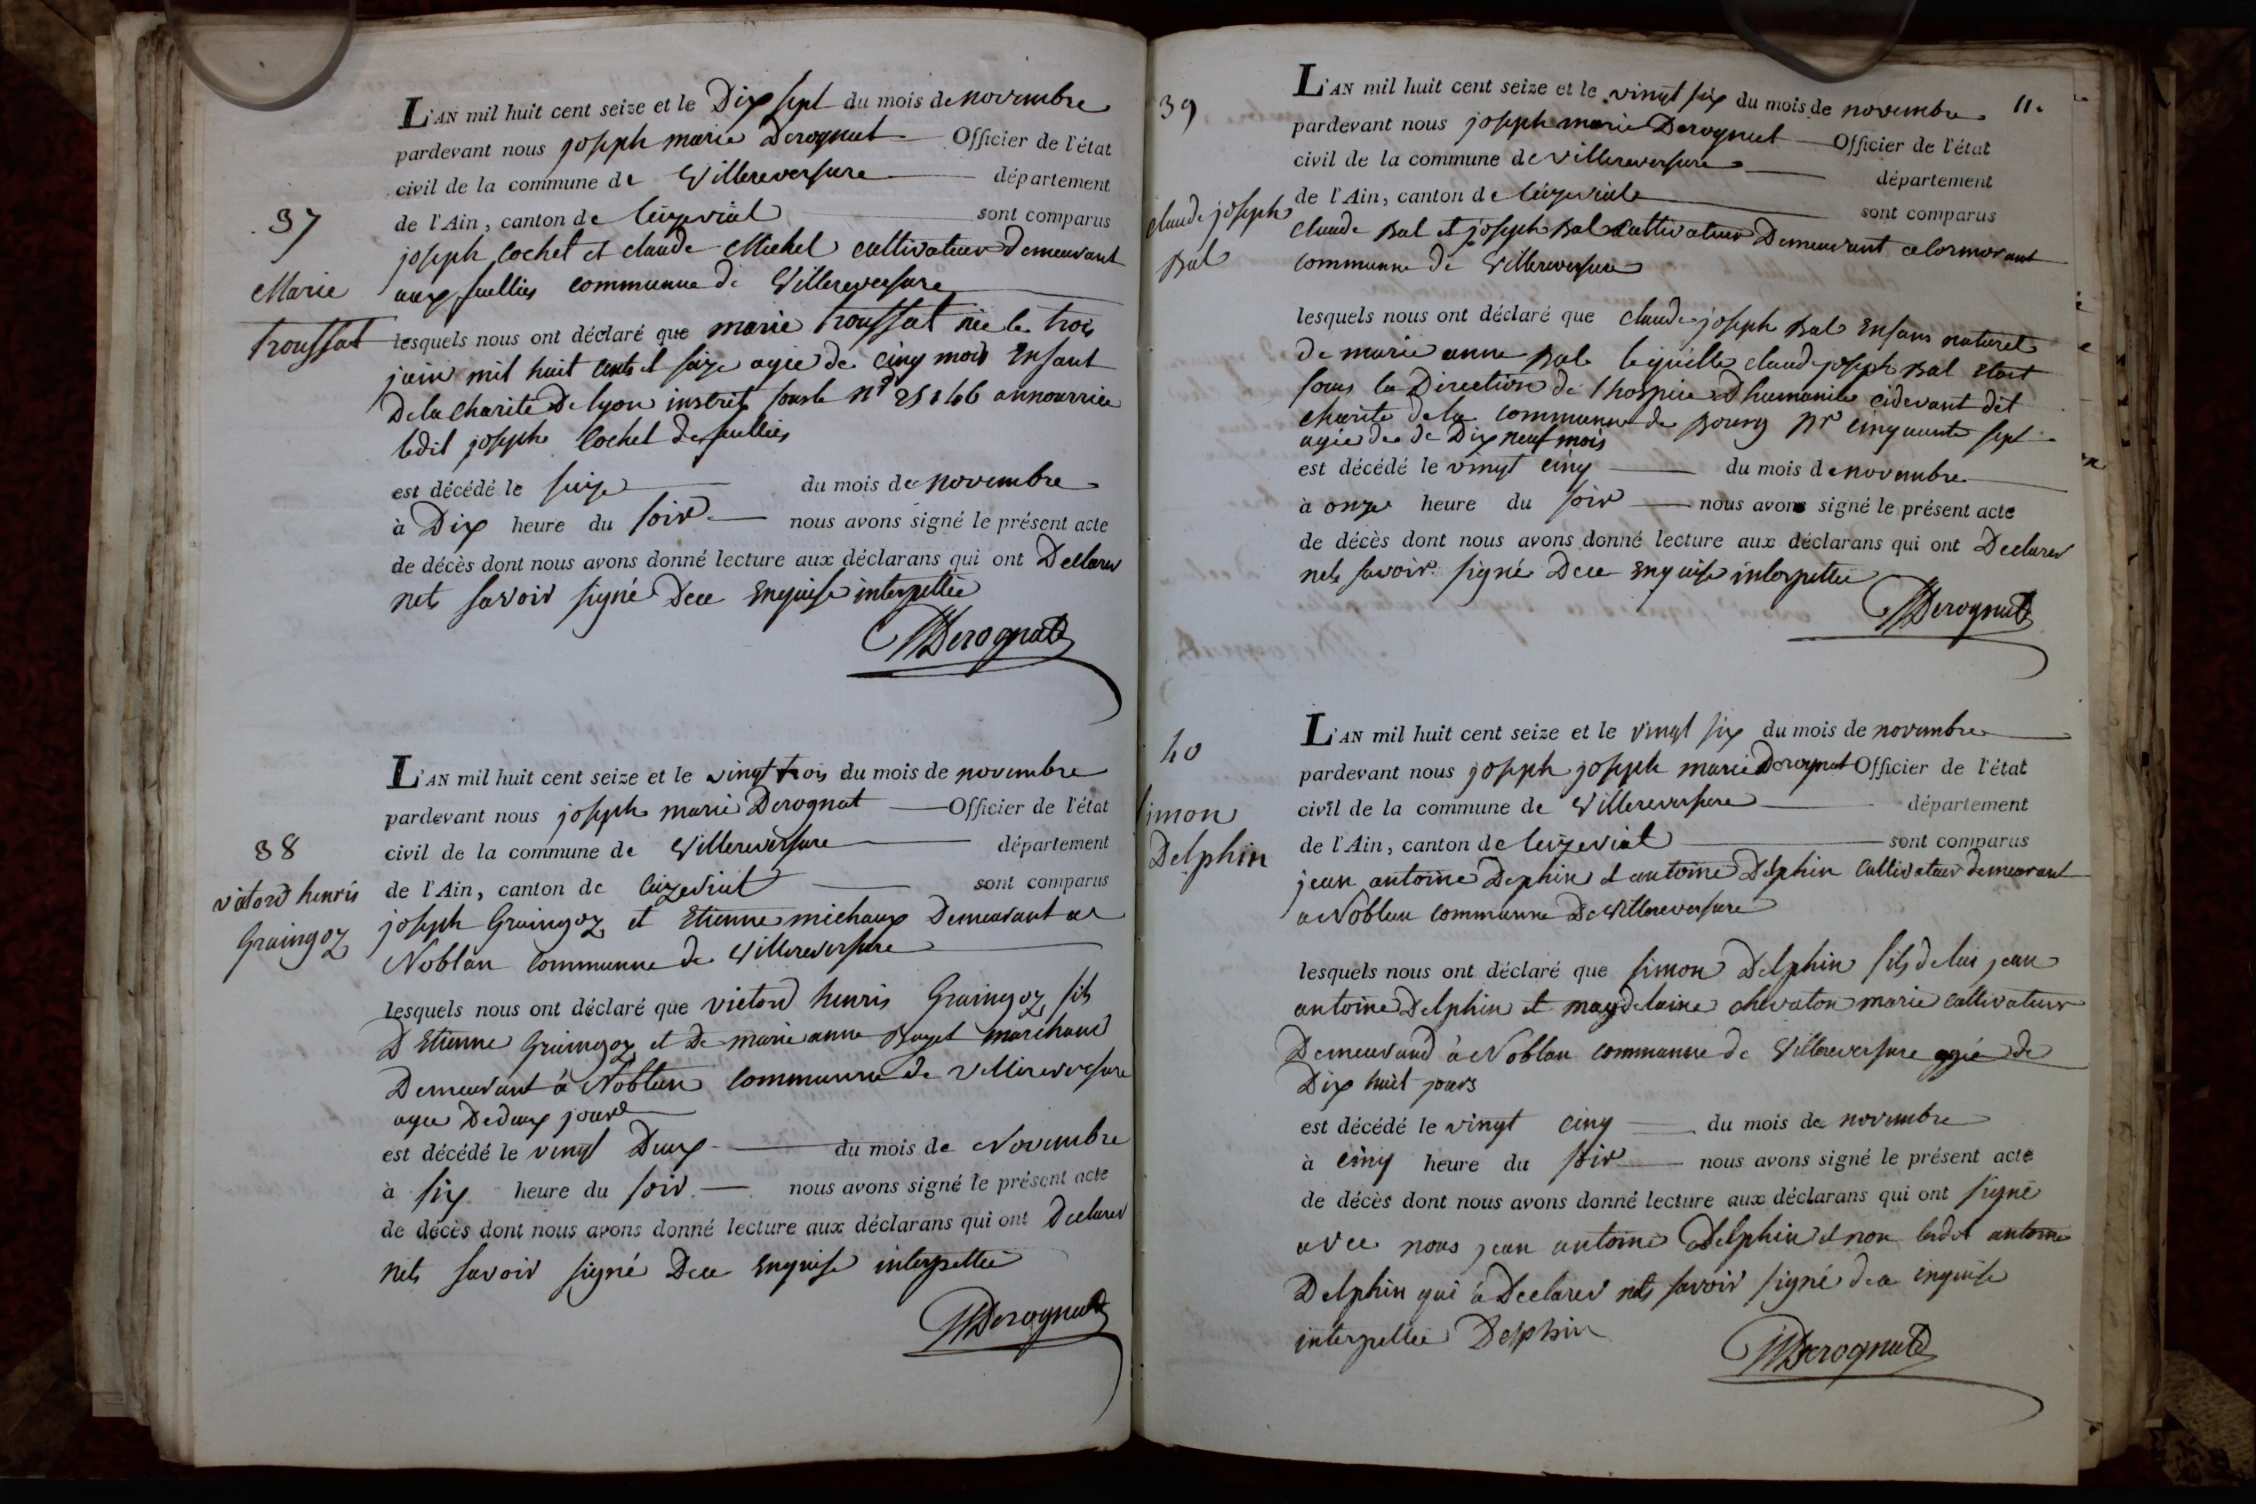 37
Marie
troussat
L'AN mil huit cent seize et le Dix sept du mois de novembre
pardevant nous joseph marie Derognat Officier de l'état
civil de la commune de Villereversure département
de l'Ain, canton de Ceizeriat sont comparus
joseph Cochet et claude Michel cultivateur Demeurant
aux feullies commune de Villereversure
lesquels nous ont déclaré que marie troussat née le trois
juin mil huit cents et seize agée de cinq mois Enfant
De la charite De lyon inscrit sous le nr annourrice
ledit joseph Cochet des feullies
est décédé le seize du mois de novembre
à Dix heure du soir nous avons signé le présent acte
de décès dont nous avons donné lecture aux déclarans qui ont Declarer
nets savoir signé Dece Enquise interpellée
Derognat
38
victord henris
Graingoz
L'AN mil huit cent seize et le vingt trois du mois de novembre
pardevant nous joseph marie Derognat Officier de l'état
civil de la commune de Villereversure département
de l'Ain, canton de Ceizeriat sont comparus
joseph Graingoz et Etienne michaux Demeurant a
Noblan commune de Villereversure
lesquels nous ont déclaré que victord henris Graingoz fils
D Etienne Graingoz et De marie anne Buget marchand
Demeurant à Noblan commune de villereversure
agee De deux jours
est décédé le vingt Deux du mois de Novembre
à six heure du soir nous avons signé le présent acte
de décès dont nous avons donné lecture aux déclarans qui ont Declarer
nets savoir signé Dece Enquise interpellée
Derognat
11.
39
claude joseph
Bal
L'AN mil huit cent seize et le vingt six du mois de novembre
pardevant nous joseph marie Derognat Officier de l'état
civil de la commune de villereversure département
de l'Ain, canton de Ceizeriat sont comparus
claude Bal et joseph Bal Cultivateur Demeurant a Cormorant
commune de Villereversure
lesquels nous ont déclaré que claude joseph Bal Enfans naturel
de marie anne Bal lequelle claude joseph Bal Etoit
sous la Direction de l'hospice D humanite cidevant dit
charite de la commune de Bourg nr cinquante sept
agée de de Dix neuf mois
est décédé le vingt cinq du mois de novembre
à onze heure du soir nous avons signé le présent acte
de décès dont nous avons donné lecture aux déclarans qui ont Declarer
nets savoir signé Dece Enquise interpellée
Derognat
40
simon
Delphin
L'AN mil huit cent seize et le vingt six du mois de novembre
pardevant nous joseph joseph marie Derognat Officier de l'état
civil de la commune de Villereversure département
de l'Ain, canton de Ceizeriat sont comparus
jean antoine Dephin et antoine Delphin Cultivateur demeurant
a Noblan commune De Villereversure
lesquels nous ont déclaré que simon Delphin fils de lui jean
antoine Delphin et magdelaine chevaton marie cultivateur
Demeurand à Noblan commune de Villereversure agé de
Dix huit jours
est décédé le vingt cinq du mois de novembre
à cinq heure du soir nous avons signé le présent acte
de décès dont nous avons donné lecture aux déclarans qui ont signé
avec nous jean antoine Delphin et non ledit antoine
Delphin qui à Declarer nets savoir signé dece enquise
interpellée Delphin
Derognat